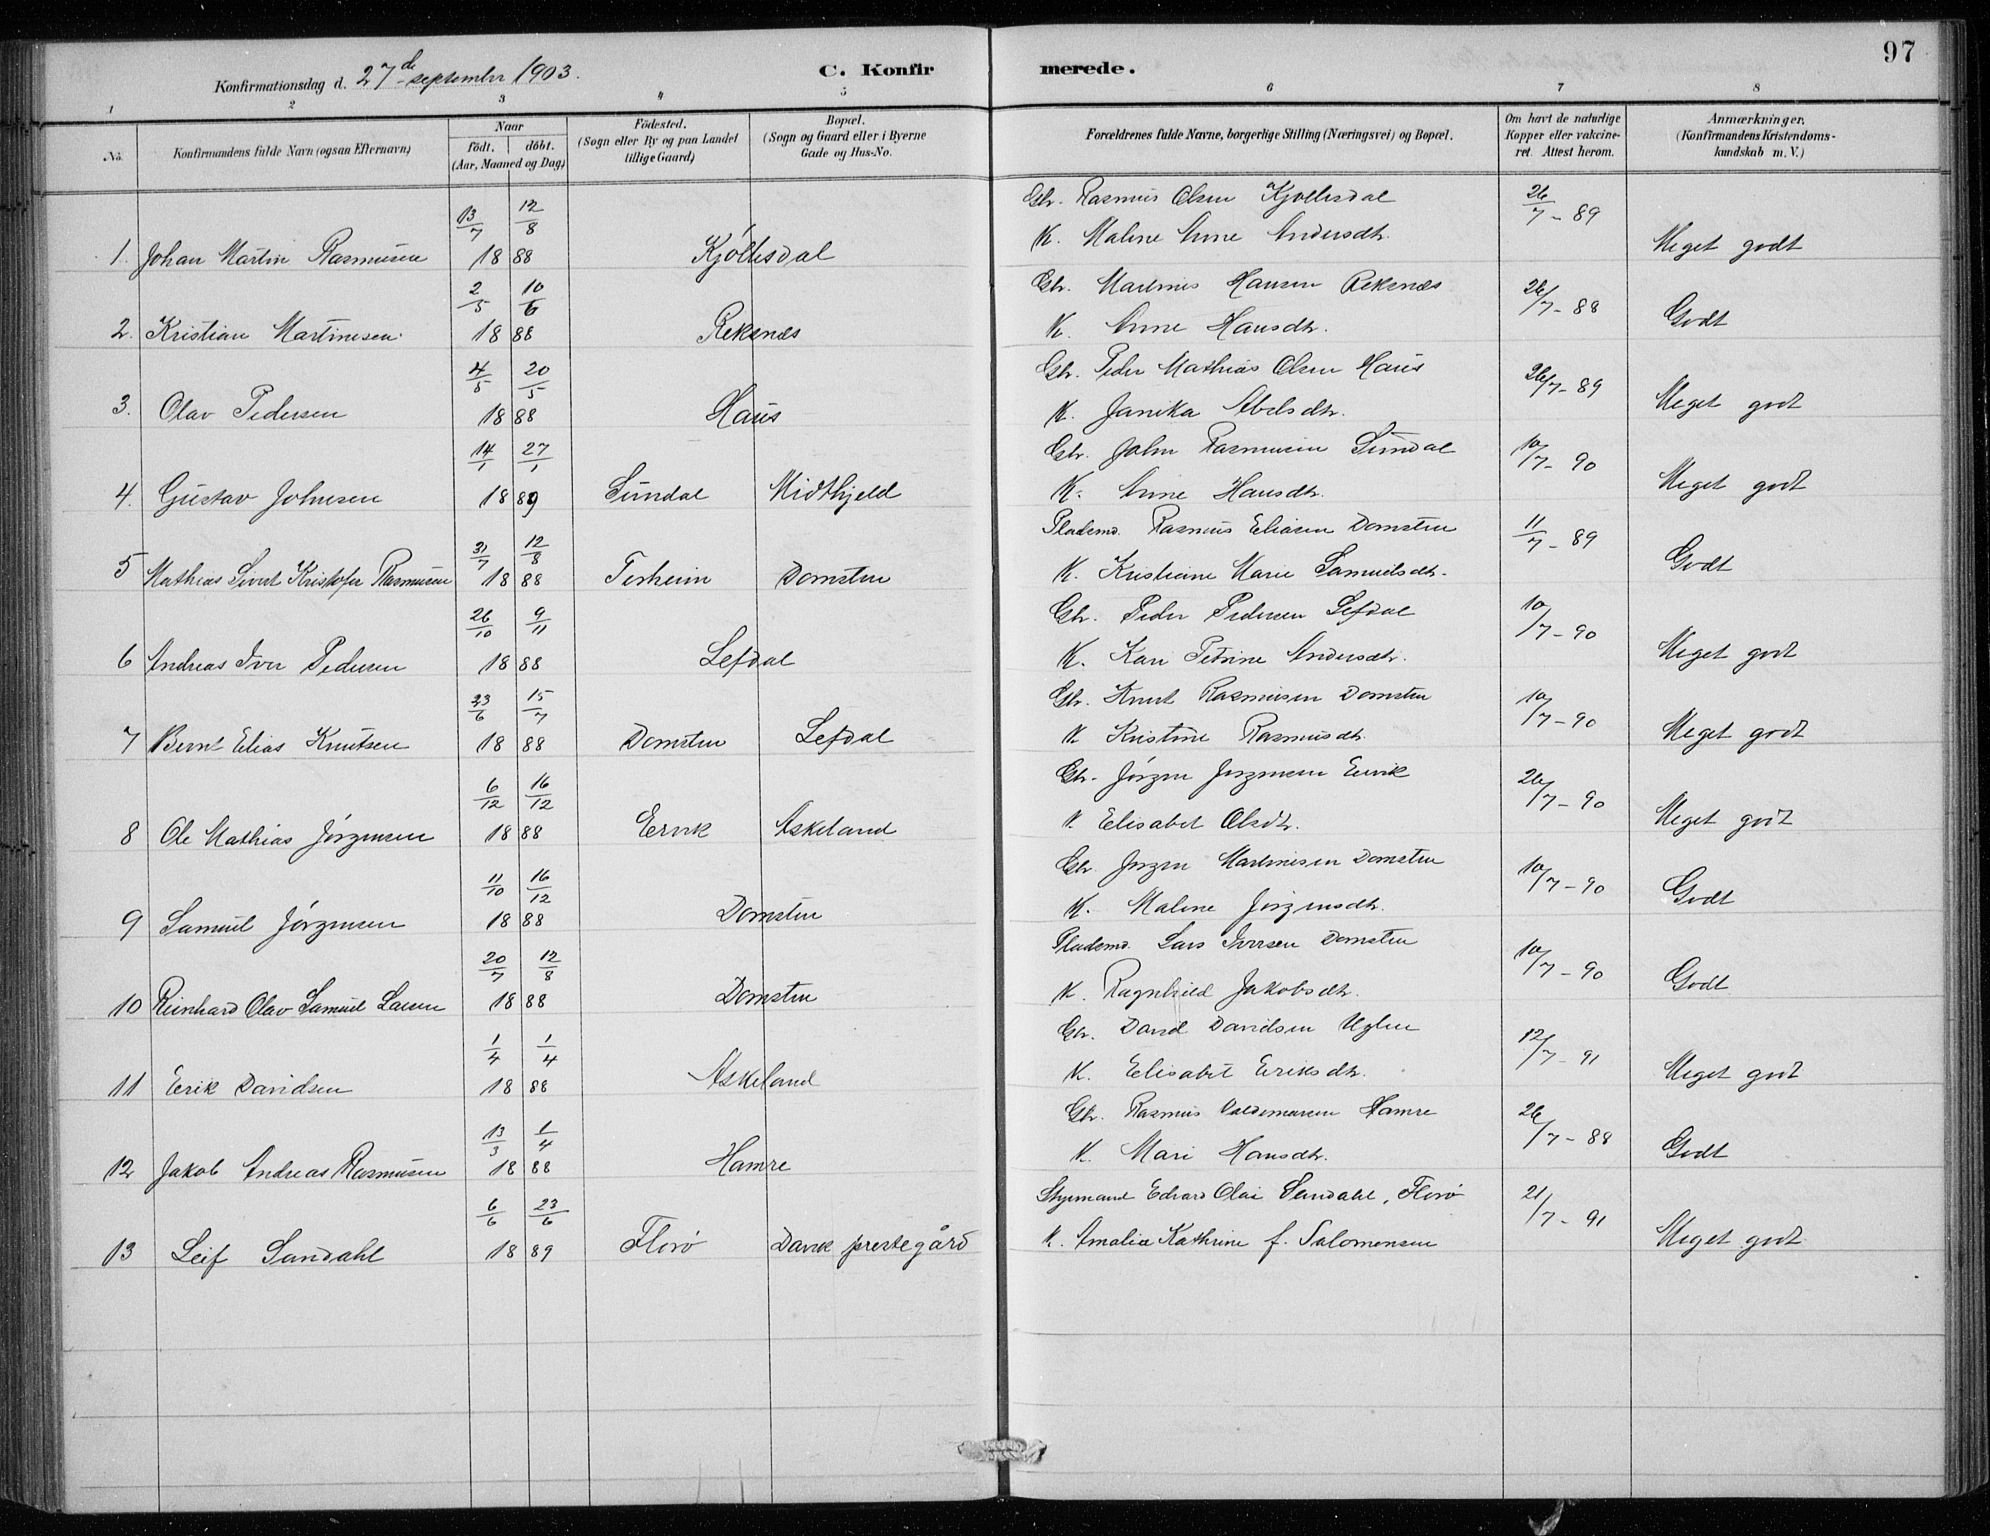 97
Konfirmationsdag d. 27de september 1903.
C. Konfirmerede.
1 2 3 4 5 6 7 8
No.
Konfirmandens fulde Navn (ogsaa Efternavn)
Naar
födt. döbt.
(Aar, Maaned og Dag)
Födested.
(Sogn eller By og paa Landet
tillige Gaard)
Bopæl.
(Sogn og Gaard eller i Byerne
Gade og Hus-No.
Forældrenes fulde Navne, borgerlige Stilling (Næringsvei) og Bopæl.
Om havt de naturlige
Kopper eller vakcine-
ret. Attest herom.
Anmærkninger.
(Konfirmandens Kristendoms-
kundskab m. V.)
13/7 12/8 Gbr. Rasmus Olsen Kjöllesdal 26/7-89
1. Johan Martin Rasmusen 18 88 Kjöllesdal K. Malene Anne Andersdtr. Meget godt
2/5 10/6 Gbr. Martinus Hansen Reksnæs 26/7-88
2. Kristian Martinesen 18 88 Reksnæs K. Anne Hansdtr. Godt
4/5 20/5 Gbr. Peder Mathias Olsen Haus 26/7-89
3. Olav Pedersen 18 88 Haus K. Janika Abelsdtr. Meget godt
14/1 27/1 Gbr. John Rasmusen Sundal 10/7-90
4. Gustav Johnsen 18 89 Sundal Midthjeld K. Anne Hansdtr. Meget godt
31/7 12/8 Pladsmd. Rasmus Eliasen Domsten 11/7-89
5 Mathias Sivert Kristofer Rasmusen 18 88 Torheim Domsten K. Kristine Marie Samuelsdtr. Godt
26/10 9/11 Gbr. Peder Pedersen Lefdal 10/7-90
6 Andreas Iver Pedersen 18 88 Lefdal K. Kari Petrine Andersdtr. Meget godt
23/6 15/7 Gbr. Knut Rasmusen Domsten 10/7-90
7 Bernt Elias Knutsen 18 88 Domsten Lefdal K Kristine Rasmusdtr. Meget godt
6/12 16/12 Gbr. Jörgen Jörgensen Eervik 26/7-90
8 Ole Mathias Jörgensen 18 88 Ervik Askeland K. Elisabet Olsdtr. Meget godt
11/10 16/12 Gbr. Jörgen Martinusen Domsten 10/7-90
9 Samuel Jörgensen 18 88 Domsten K. Malene Jörgensdtr. Godt
20/7 12/8 Pladsmd. Lars Iversen Domsten 10/7-90
10 Reinhard Olav Samuel Larsen 18 88 Domsten K. Ragnhild Jakobsdtr. Godt
1/4 1/4 Gbr. David Davidsen Uglen 12/7-91
11 Eerik Davidsen 18 88 Askeland K. Elisabet Eeriksdtr. Meget godt
13/3 1/4 Gbr. Rasmus Valdemarsen Hamre 26/7-88
12 Jakob Andreas Rasmusen 18 88 Hamre K. Mari Hansdtr. Godt
6/6 23/6 Styrmand Edvard Olai Sandahl, Florö 21/7-91
13 Leif Sandahl 18 89 Florö Davik prestegård K. Amalia Kathrine f. Salomonsen Meget godt